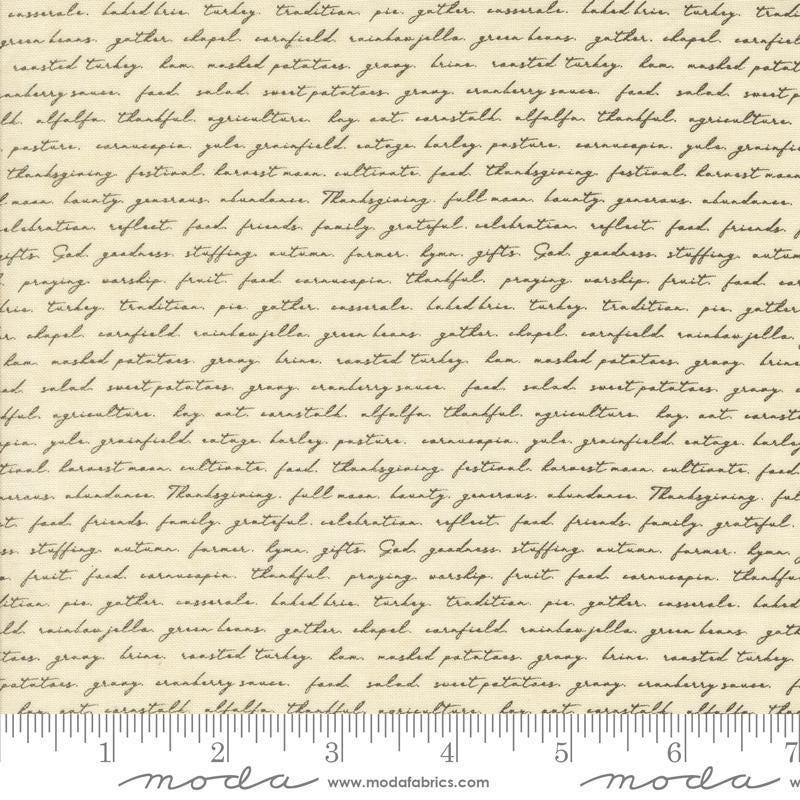 casserole. baked brie. turkey. tradition. pie. gather. casserole. baked brie. turkey. tradi
green beans. gather. chapel. cornfield. rainbow jello. green beans. gather. chapel. cornfiel
roasted turkey. ham. mashed potatoes. gravy. brine. roasted turkey. ham. mashed potat
anberry sauce. food. salad. sweet potatoes. gravy. cranberry sauce. food. salad. sweet p
lk. alfalfa. thankful. agriculture. hay. oat. cornstalk. alfalfa. thankful. agriculture.
pasture. cornucopia. yule. grainfield. cotage. barley. pasture. cornucopia. yule. grainfie
thanksgiving. festival. harvest moon. cultivate. food. thanksgiving. festival. harvest moon
l moon. bounty. generous. abundance. Thanksgiving. full moon. bounty. generous. abundance.
elebration. reflect. food. friends. family. grateful. celebration. reflect. food. friends. f
gifts. God. goodness. stuffing. autumn. farmer. hymn. gifts. God. goodness. stuffing. autum
praying. worship. fruit. food. cornucopia. thankful. praying. worship. fruit. food. cor
brie. turkey. tradition. pie. gather. casserole. baked brie. turkey. tradition. pie. gather
r. chapel. cornfield. rainbow jello. green beans. gather. chapel. cornfield. rainbow jello.
ham. mashed potatoes. gravy. brine. roasted turkey. ham. mashed potatoes. gravy. brine
od. salad. sweet potatoes. gravy. cranberry sauce. food. salad. sweet potatoes. gravy. c
kful. agriculture. hay. oat. cornstalk. alfalfa. thankful. agriculture. hay. oat. cornst
opia. yule. grainfield. cotage. barley. pasture. cornucopia. yule. grainfield. cotage. barley
tival. harvest moon. cultivate. food. thanksgiving. festival. harvest moon. cultivate. food.
nerous. abundance. Thanksgiving. full moon. bounty. generous. abundance. Thanksgiving. ful
t. food. friends. family. grateful. celebration. reflect. food. friends. family. grateful.
ss. stuffing. autumn. farmer. hymn. gifts. God. goodness. stuffing. autumn. farmer. hymn. g
fruit. food. cornucopia. thankful. praying. worship. fruit. food. cornucopia. thankfu
dition. pie. gather. casserole. baked brie. turkey. tradition. pie. gather. casserole. baked
ld. rainbow jello. green beans. gather. chapel. cornfield. rainbow jello. green beans. gath
toes. gravy. brine. roasted turkey. ham. mashed potatoes. gravy. brine. roasted turkey.
potatoes. gravy. cranberry sauce. food. salad. sweet potatoes. gravy. cranberry sauce. f
hay. oat. cornstalk. alfalfa. thankful. agriculture. hay. oat. cornstalk. alfalfa. than
1 2 3 4 5 6 7
moda www.modafabrics.com moda w